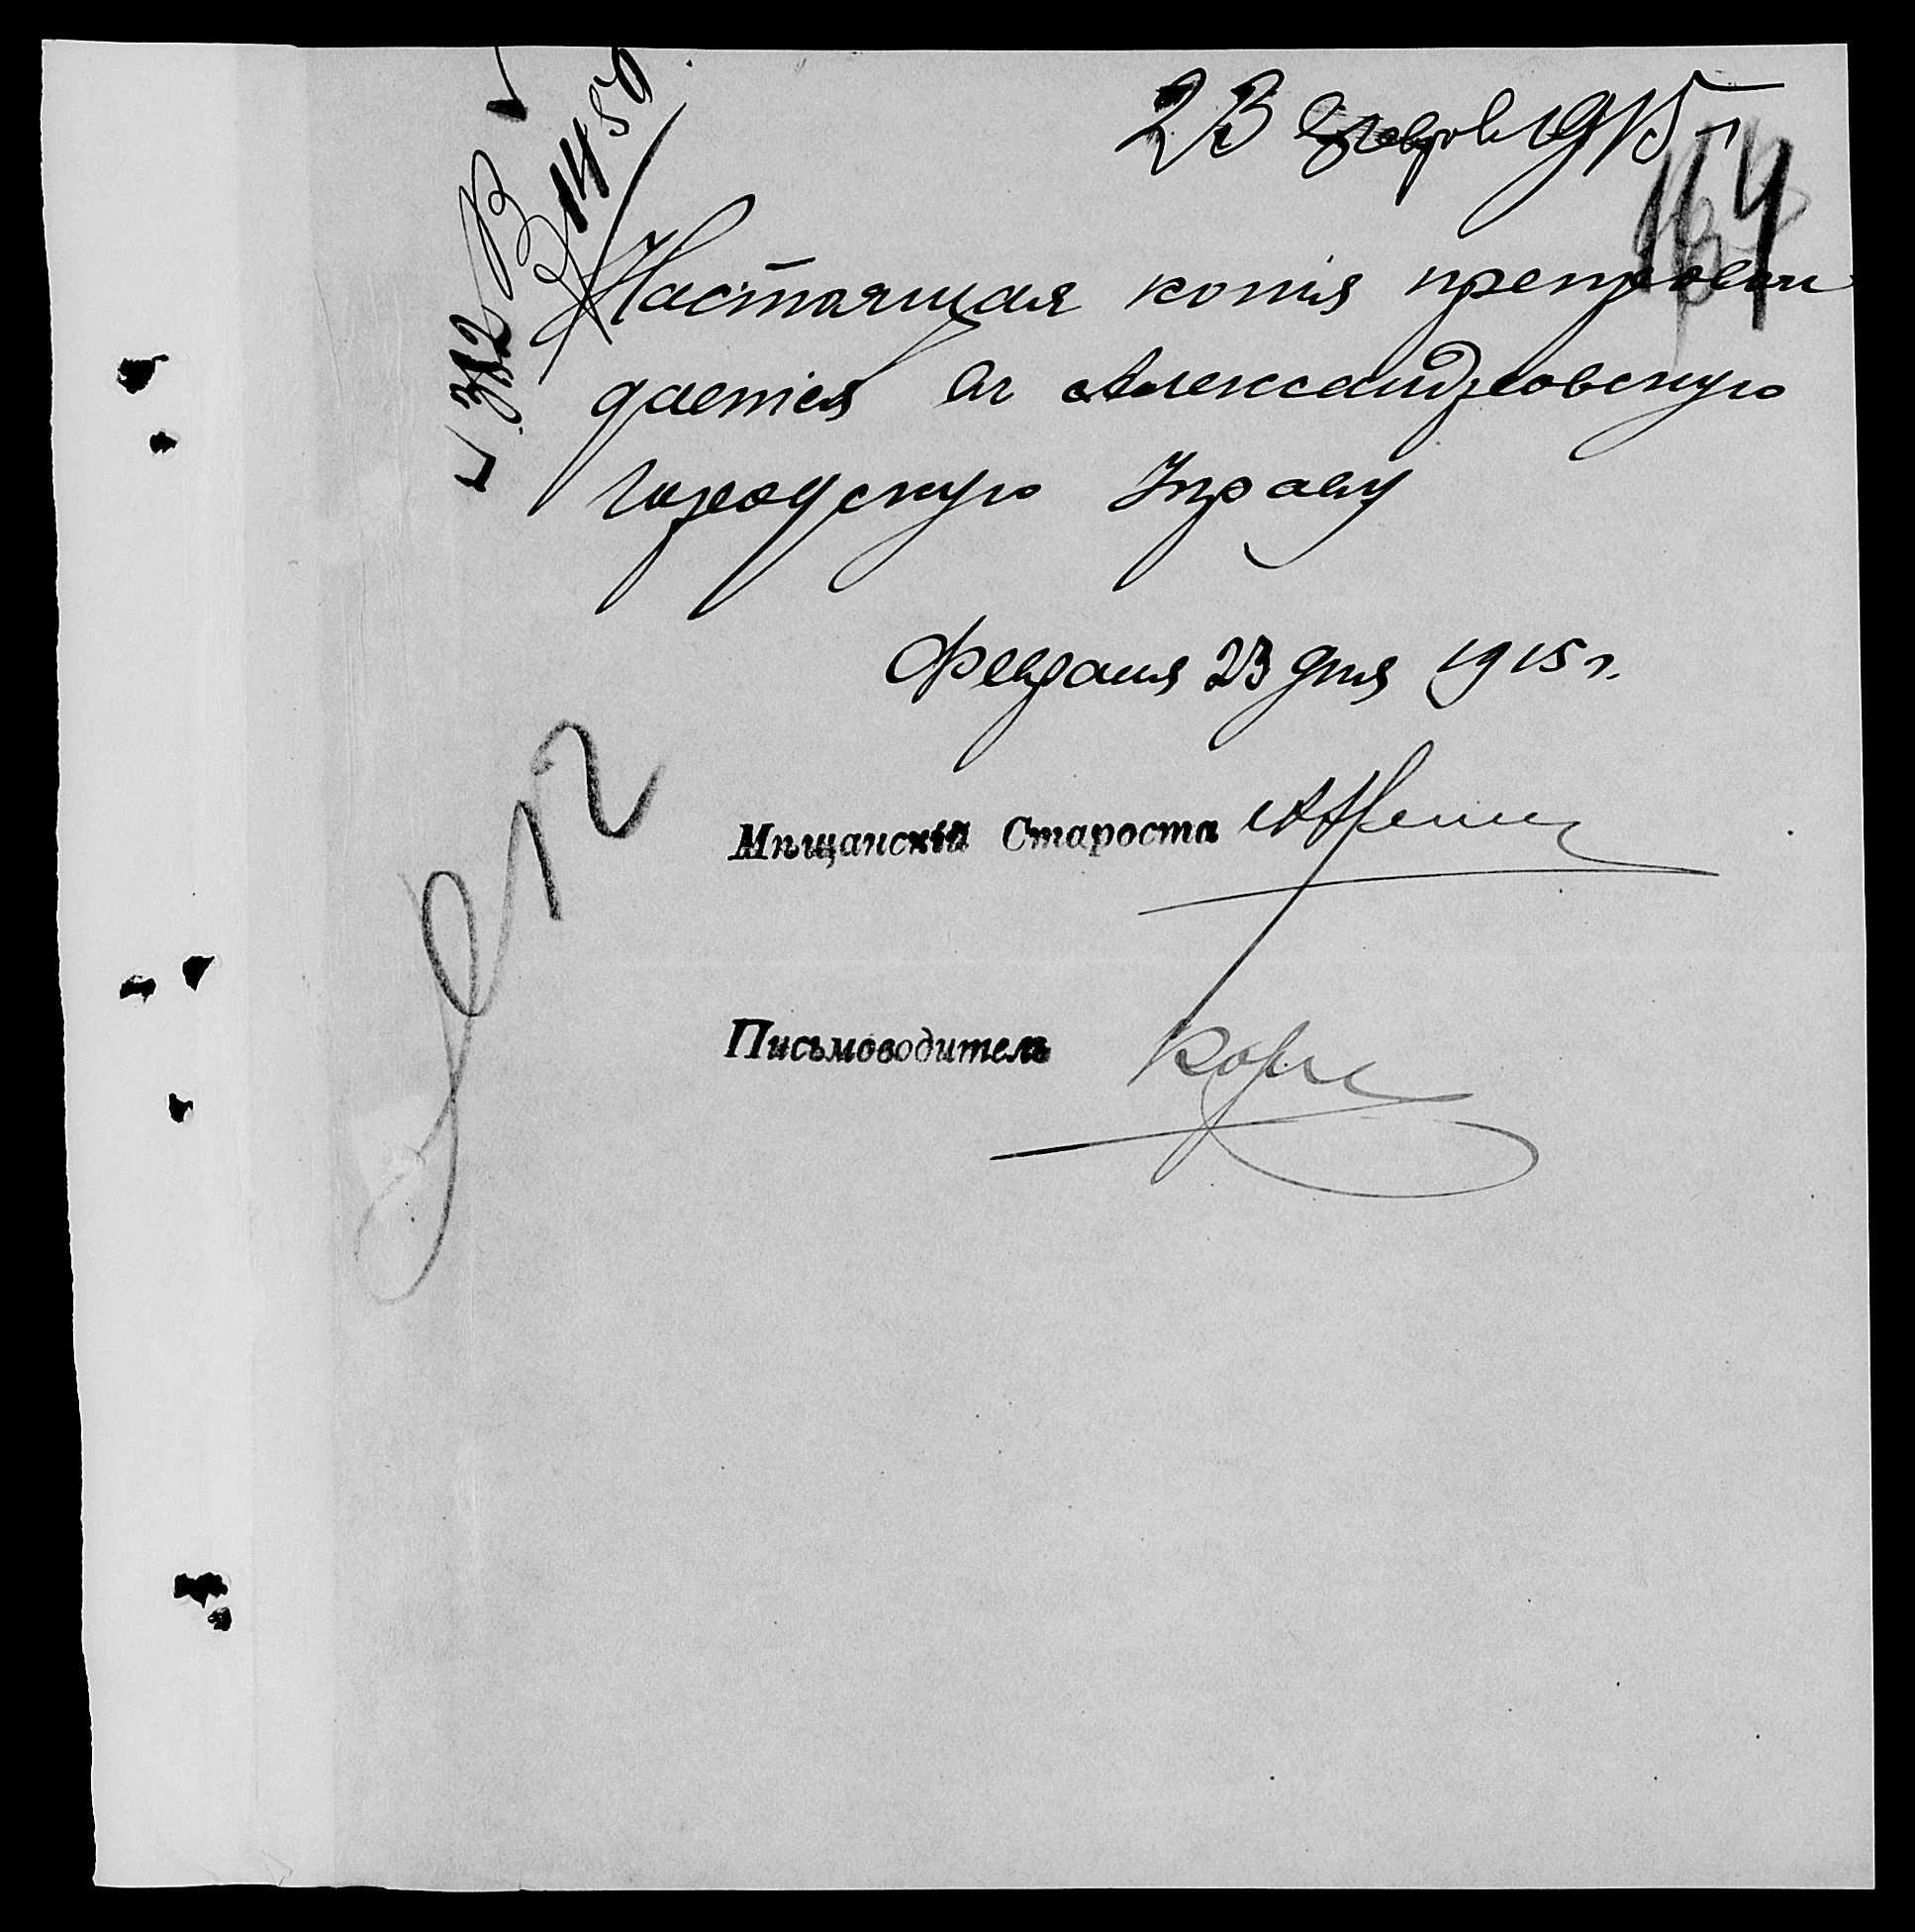 23 февр 1915 г
164
382 В
1450
Настоящая копія препровож
дается въ Александровскую
Городскую Управу
Февраля 23 дня 1915 г.
Мѣщанскій Староста
Письмоводитель